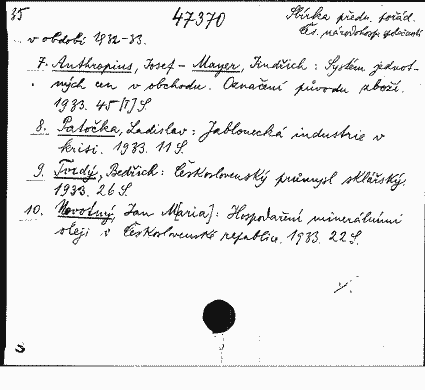 35 47370 Sbírka předn. pořád.
Čs. národohosp. společností
v období 1932-33.
7. Anthropius, Josef - Mayer, Jindřich: Systém jednot-
ných cen v obchodu. Označení původu zboží.
1933. 45 [1] S
8. Patočka, Ladislav: Jablonecká industrie v
krisi. 1933. 11 S.
9. Tvrdý, Bedřich: Československý průmysl sklářský.
1933. 26 S
10. Novotný, Jan M[aria]: Hospodaření minerálními
oleji v Československé republice. 1933. 22 S.